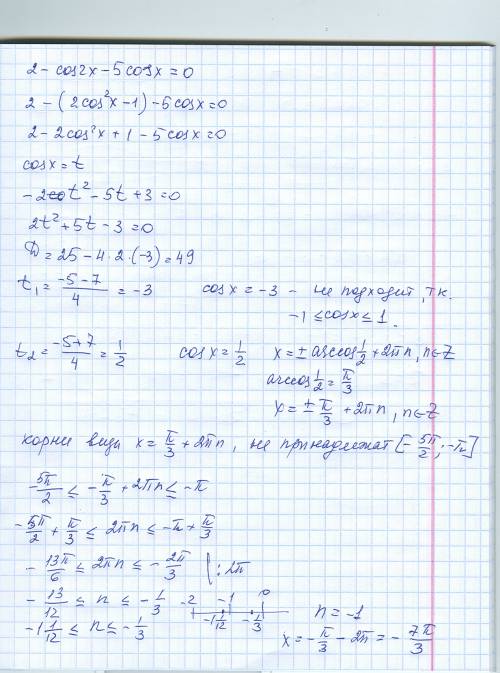 2 - cos2x - 5cosx = 0
2 - (2cos²x - 1) - 5cosx = 0
2 - 2cos²x + 1 - 5cosx = 0
cosx = t
-2t² - 5t + 3 = 0
2t² + 5t - 3 = 0
D = 25 - 4·2·(-3) = 49
t₁ = (-5-7)/4 = -3 cosx = -3 - не подходит, т.к.
-1 ≤ cosx ≤ 1.
t₂ = (-5+7)/4 = 1/2 cosx = 1/2 x = ± arccos 1/2 + 2πn, n∈Z
arccos 1/2 = π/3
x = ± π/3 + 2πn, n∈Z
корни вида x = π/3 + 2πn, не принадлежат [-5π/2; -π]
-5π/2 ≤ -π/3 + 2πn ≤ -π
-5π/2 + π/3 ≤ 2πn ≤ -π + π/3
-13π/6 ≤ 2πn ≤ -2π/3 | : 2π
-13/12 ≤ n ≤ -1/3 -2 -1 0
-1 1/12 ≤ n ≤ -1/3 -1 1/12 -1/3 n = -1
x = -π/3 - 2π = -7π/3